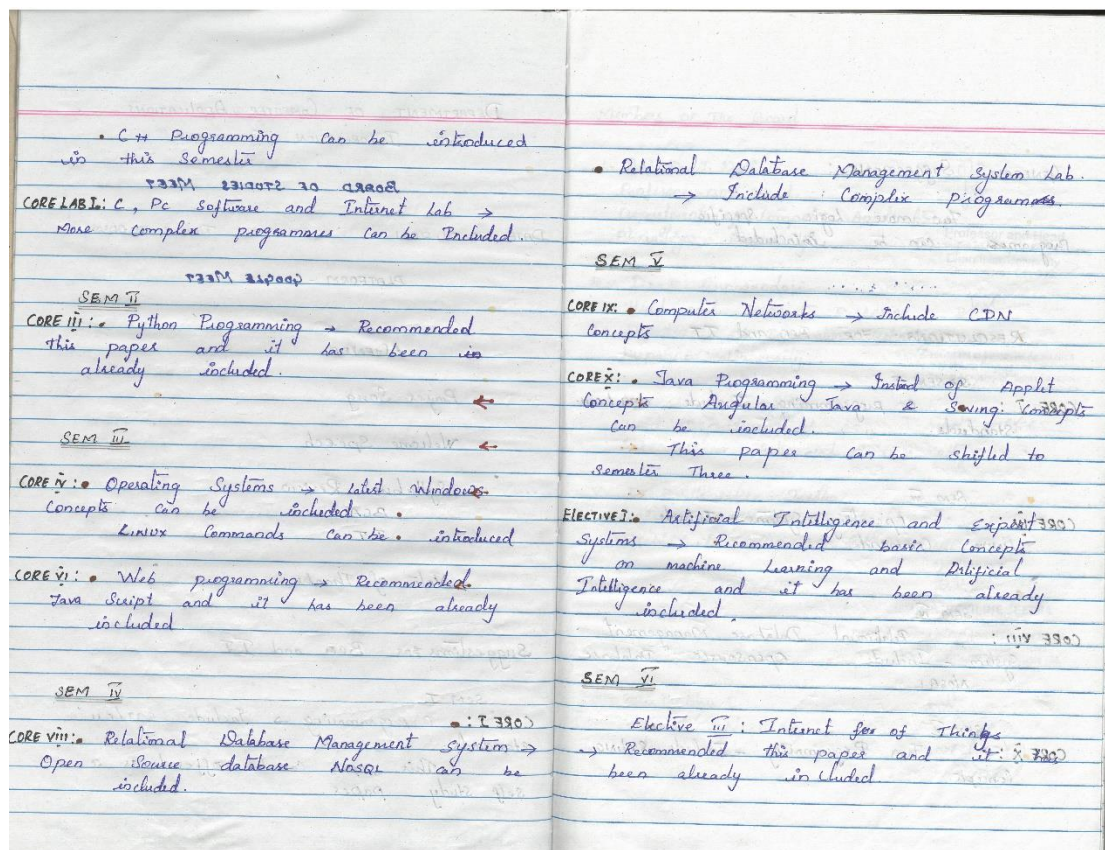 • C++ Programming can be introduced
in this Semester
CORE LAB I: C, Pc Software and Internet Lab →
More complex programmes can be Included.
SEM II
CORE III: • Python Programming → Recommended
this paper and it has been in
already included.
SEM III
CORE IV: • Operating Systems → Latest Windows
Concepts can be included.
LINUX Commands can be introduced
CORE VI: • Web programming → Recommended
Java Script and it has been already
included
SEM IV
CORE VIII: • Relational Database Management System →
Open Source database NoSQL can be
included.
• Relational Database Management System Lab.
→ Include Complex programs.
SEM V
CORE IX: • Computer Networks → Include CDN
Concepts
CORE X: • Java Programming → Insted of Applet
Concepts Angular Java & Swing Concepts
can be included.
This paper can be shifted to
Semester Three.
ELECTIVE I: • Artificial Intelligence and Expert
Systems → Recommended basic Concepts
on machine Learning and Artificial
Intelligence and it has been already
included.
SEM VI
Elective III: Internet for of Things
→ Recommended this paper and it has
been already included